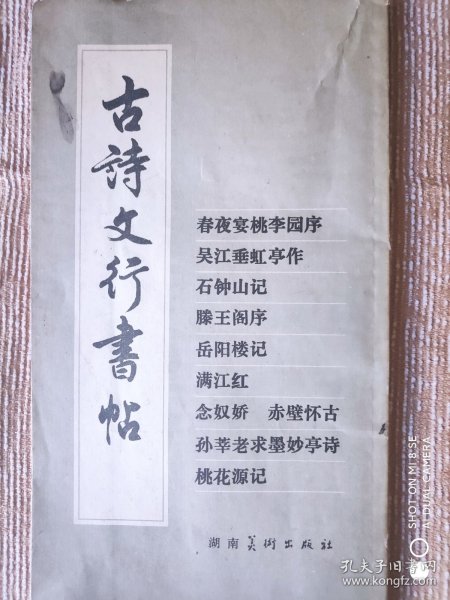 古詩文行書帖
春夜宴桃李园序
吴江垂虹亭作
石钟山记
滕王阁序
岳阳楼记
满江红
念奴娇 赤壁怀古
孙莘老求墨妙亭诗
桃花源记
湖南美術出版社
SHOT ON MI 8 SE
AI DUAL CAMERA
孔夫子旧书网
www.kongfz.com